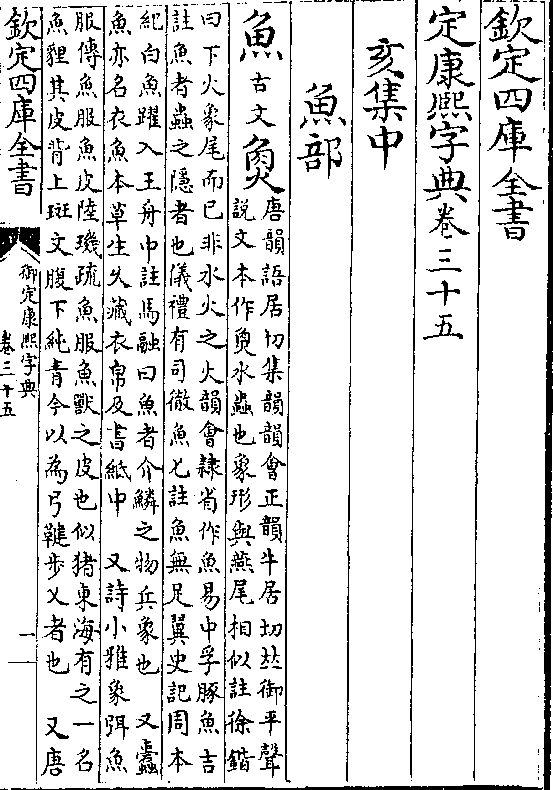 欽定四庫全書
定康熙字典卷三十五
亥集中
魚部
魚 古文𤋳 唐韻語居切集韻韻會正韻牛居切𠀤御平聲
說文本作𤋳水蟲也象形與燕尾相似註徐鍇
曰下火象尾而已非水火之火韻會隸省作魚易中孚豚魚吉
註魚者蟲之隱者也儀禮有司徹魚七註魚無足翼史記周本
紀白魚躍入王舟中註馬融曰魚者介鱗之物兵象也 又蠹
魚亦名衣魚本草生久藏衣帛及書紙中 又詩小雅象弭魚
服傳魚服魚皮陸璣疏魚服魚獸之皮也似猪東海有之一名
魚貍其皮背上斑文腹下純青今以為弓鞬步叉者也 又唐
欽定四庫全書
御定康熙字典
卷三十五
一